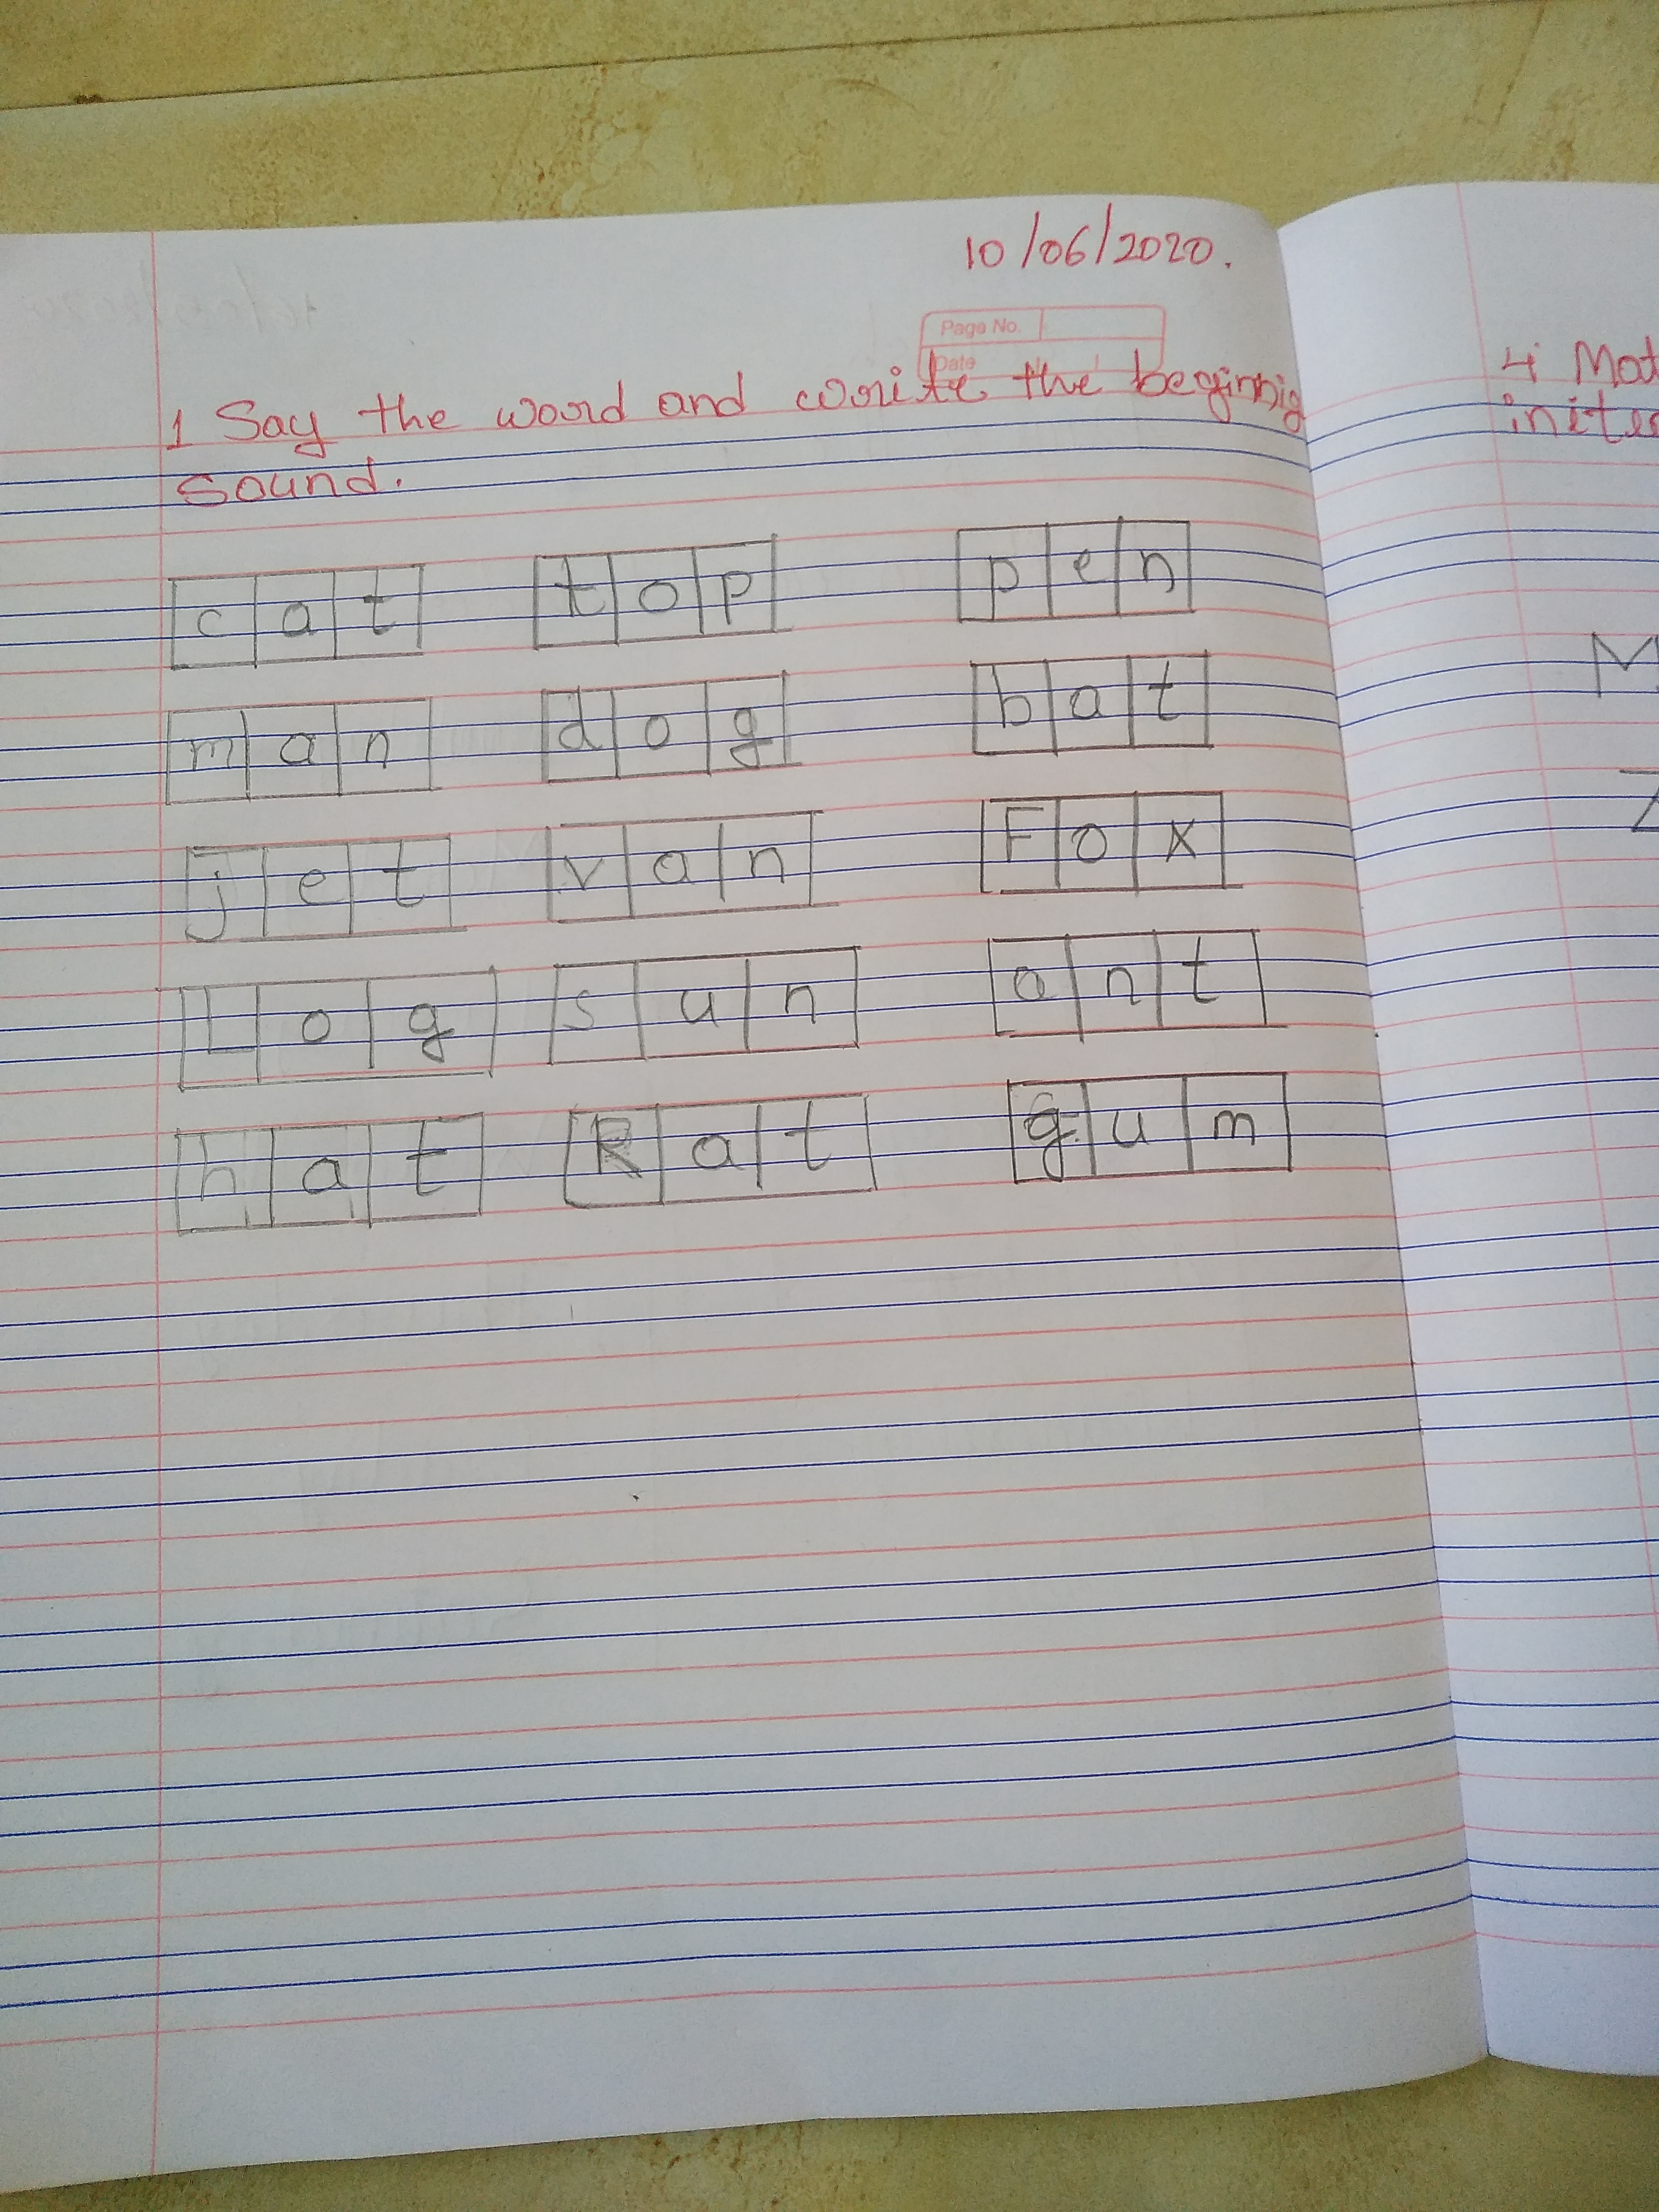 10/06/2020.
Page No.
Date
1 Say the word and write the beginnig
sound.
cat top pen
man dog bat
jet van Fox
Log sun ant
hat Rat gum
4 Mat